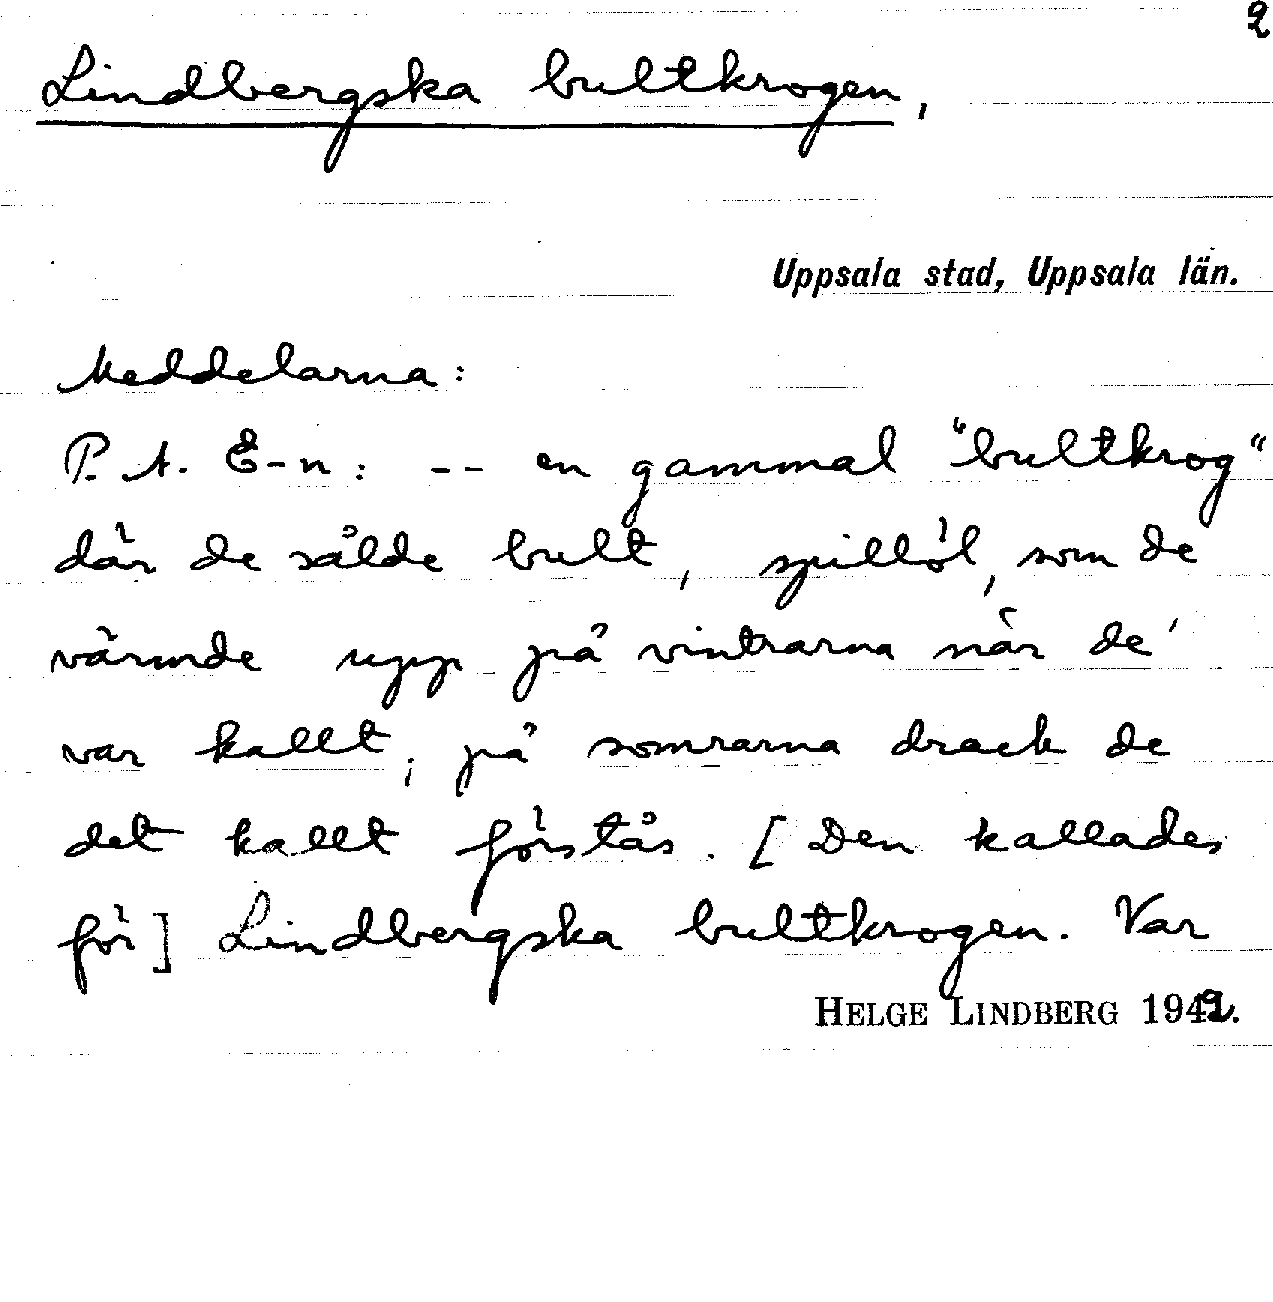 2
Lindbergska bultkrogen,
Uppsala stad, Uppsala län.
Meddelarna:
P. A. E-n: -- en gammal "bultkrog"
där de sålde bult, spillöl, som de
värmde upp på vintrarna när de'
var kallt; på somrarna drack de
det kallt förstås. [Den kallades
för] Lindbergska bultkrogen. Var
HELGE LINDBERG 1942.